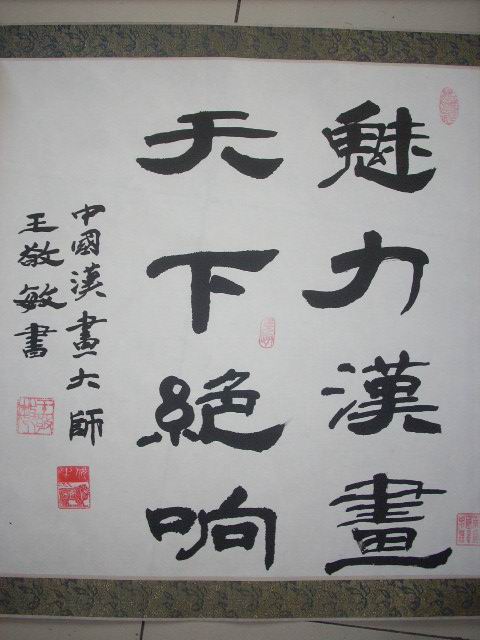 魅力漢畫
天下絕响
中國漢畫大師
王敬敏書